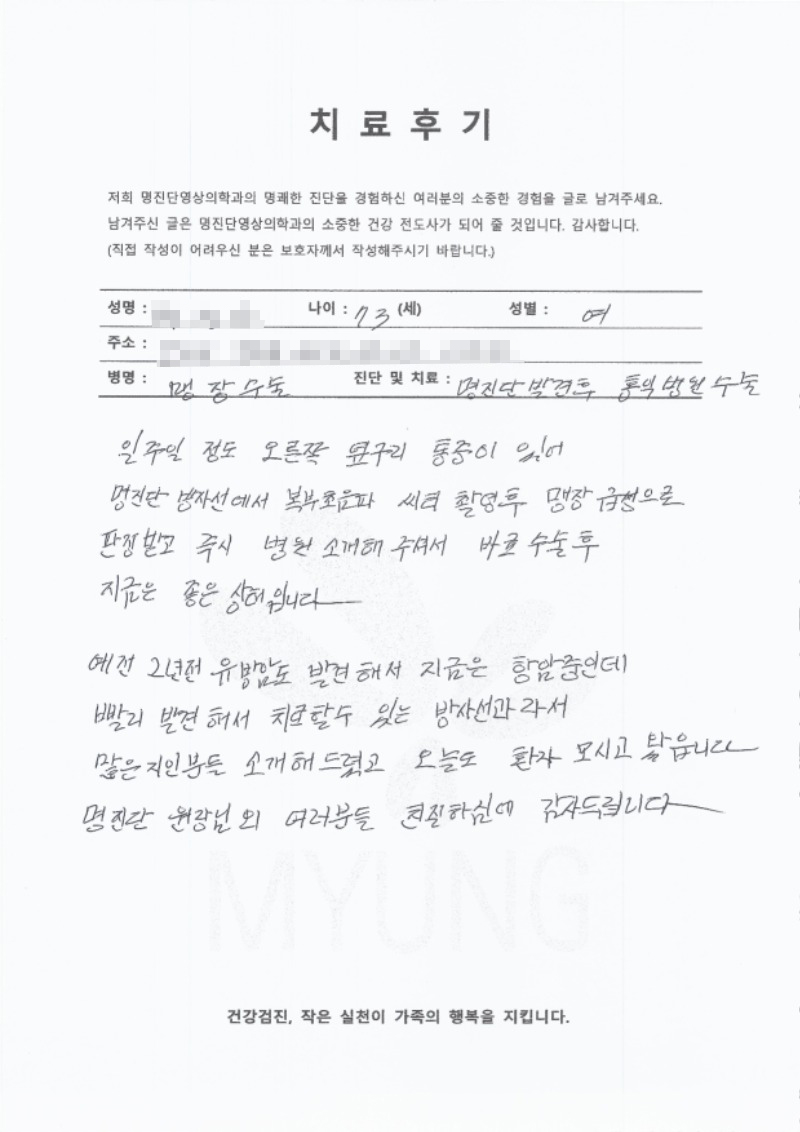 치료후기
저희 명진단영상의학과의 명쾌한 진단을 경험하신 여러분의 소중한 경험을 글로 남겨주세요.
남겨주신 글은 명진단영상의학과의 소중한 건강 전도사가 되어 줄 것입니다. 감사합니다.
(직접 작성이 어려우신 분은 보호자께서 작성해주시기 바랍니다.)
성명 : 나이 : 73 (세) 성별 : 여
주소 :
병명 : 맹장수술 진단 및 치료 : 명진단발견후 병원수술
일주일 정도 오른쪽 옆구리 통증이 있어
명진단 방사선에서 복부초음파 씨티 촬영후 맹장 급성으로
판정받고 즉시 병원 소개해 주셔서 바로 수술후
지금은 좋은 상태입니다
예전 2년전 유방암도 발견해서 지금은 항암중인데
빨리 발견해서 치료할수 있는 방사선과라서
많은지인분들 소개해드렸고 오늘도 환자 모시고
명진단 원장님외 여러분들 친절하심에 감사드립니다
MYUNG
건강검진, 작은 실천이 가족의 행복을 지킵니다.